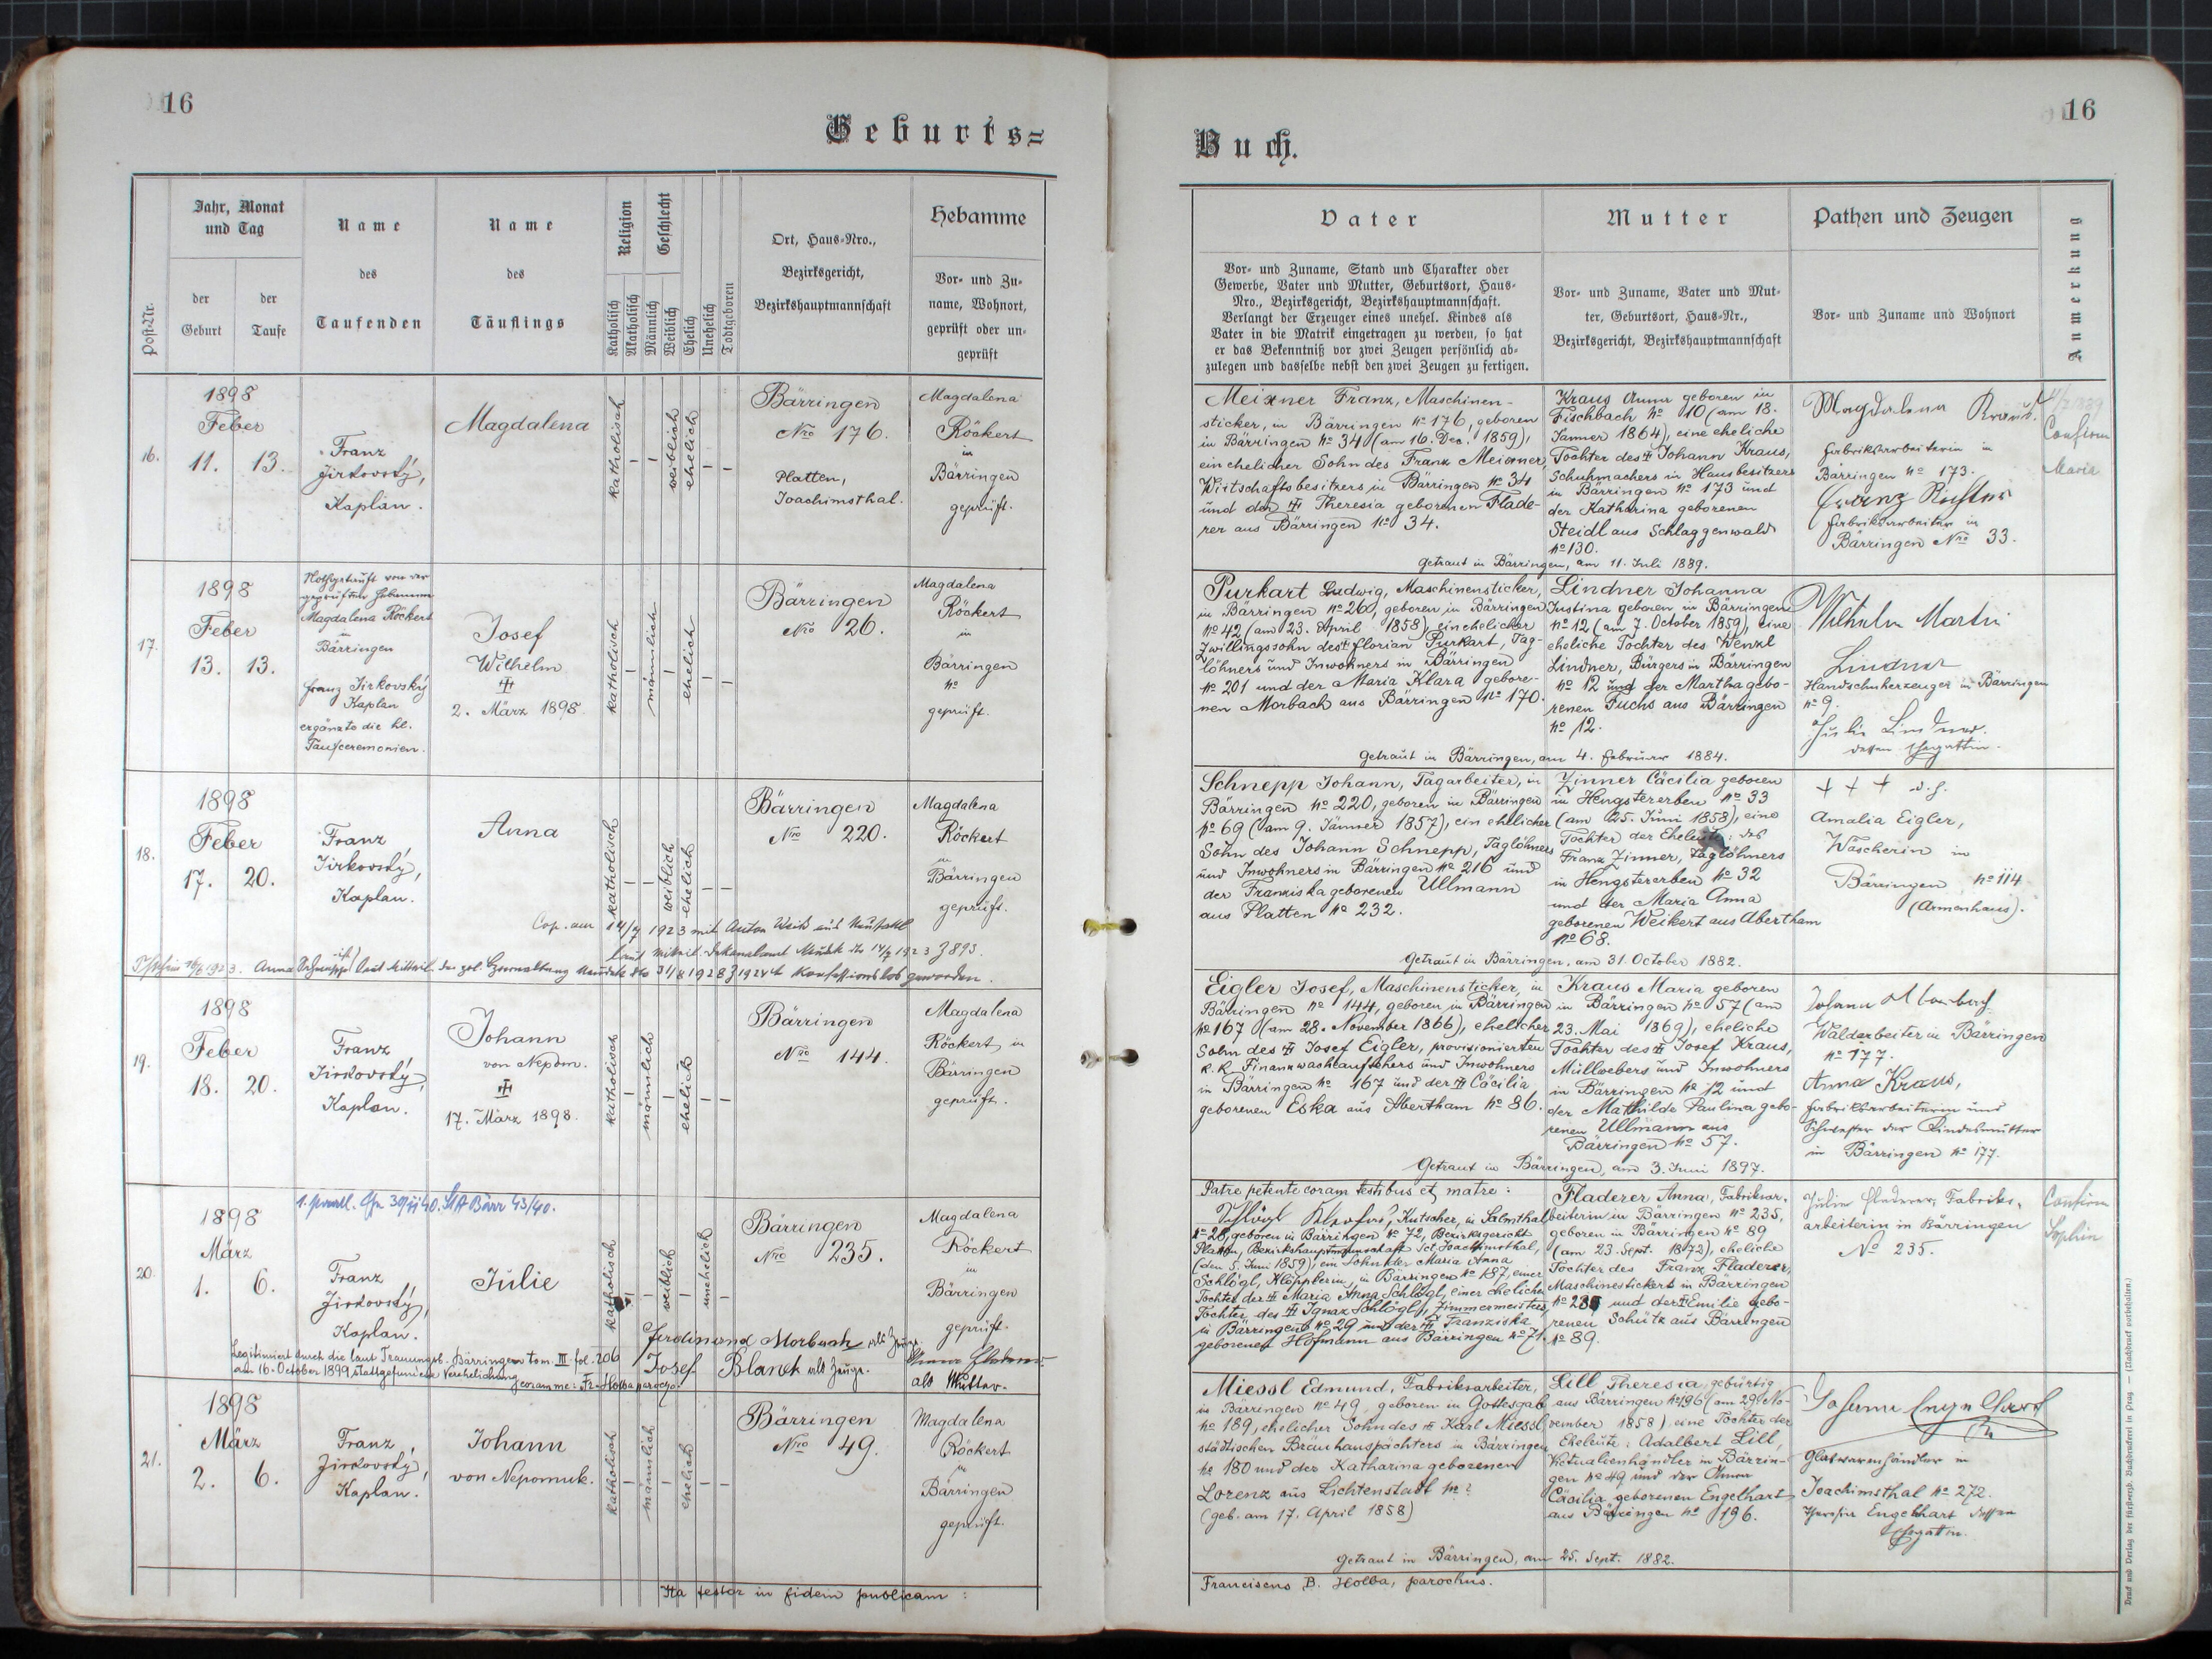 16
Geburts=
Jahr, Monat
und Tag
Name
des
Taufenden
Name
des
Täuflings
Religion
Geschlecht
Ort, Haus=Nro.,
Bezirksgericht,
Bezirkshauptmannschaft
Hebamme
Vor= und Zu=
name, Wohnort,
geprüft oder un=
geprüft
Post=Nr.
der
Geburt
der
Taufe
Katholisch
Akatholisch
Männlich
Weiblich
Ehelich
Unehelich
Todtgeboren
16.
1898
Feber
11. 13.
Franz
Jirkovský,
Kaplan.
Magdalena
katholisch
weiblich
ehelich
Bärringen
Nro 176.
Platten,
Joachimsthal.
Magdalena
Röckert
in
Bärringen
geprüft.
17.
1898
Feber
13. 13.
Nothgetauft von der
geprüften Hebamme
Magdalena Röckert
in
Bärringen
Franz Jirkovský
Kaplan
ergänzte die hl.
Taufceremonien.
Josef
Wilhelm
2. März 1898
katholisch
männlich
ehelich
Bärringen
Nro 26.
Magdalena
Röckert
in
Bärringen
No
geprüft.
18.
1898
Feber
17. 20.
Franz
Jirkovský,
Kaplan.
Anna
katholisch
weiblich
ehelich
Bärringen
Nro 220.
Magdalena
Röckert
in
Bärringen
geprüft.
Cop. am 14/7 1923 mit Anton Weiß aus Neustadt
laut Mitteil. Dekanalamt Neudek dto 14/7 1923 Z 893.
Anna laut Mitteil. der pol. Neudek dto 31/8 1928 Z 19244 konfessionslos geworden.
19.
1898
Feber
18. 20.
Franz
Jirkovský,
Kaplan.
Johann
von Nepom.
17. März 1898.
katholisch
männlich
ehelich
Bärringen
Nro 144.
Magdalena
Röckert in
Bärringen
geprüft.
20.
1898
März
1. 6.
StA Bärr 43/40.
Franz
Jirkovský,
Kaplan.
Julie
katholisch
weiblich
unehelich
Bärringen
Nro 235.
Magdalena
Röckert
in
Bärringen
geprüft.
Ferdinand Morbach als Zeuge.
Josef Blanek als Zeuge.
als Mutter.
Legitimiert durch die laut Trauungsb. Bärringen tom. III fol. 206
am 16. October 1899 stattgefundene Verehelichung
coram me: Fr. Holba parocho.
21.
1898
März
2. 6.
Franz
Jirkovský,
Kaplan.
Johann
von Nepomuk.
katholisch
männlich
ehelich
Bärringen
Nro 49.
Magdalena
Röckert
in
Bärringen
geprüft.
Ita testor in fidem publicam:
16
Buch.
Vater
Vor= und Zuname, Stand und Charakter oder
Gewerbe, Vater und Mutter, Geburtsort, Haus=
Nro., Bezirksgericht, Bezirkshauptmannschaft.
Verlangt der Erzeuger eines unehel. Kindes als
Vater in die Matrik eingetragen zu werden, so hat
er das Bekenntniß vor zwei Zeugen persönlich ab=
zulegen und dasselbe nebst den zwei Zeugen zu fertigen.
Mutter
Vor= und Zuname, Vater und Mut=
ter, Geburtsort, Haus=Nr.,
Bezirksgericht, Bezirkshauptmannschaft
Pathen und Zeugen
Vor= und Zuname und Wohnort
Anmerkung
Meixner Franz, Maschinen-
sticker, in Bärringen No 176, geboren
in Bärringen No 34 (am 16. Dec. 1859),
ein ehelicher Sohn des Franz Meixner,
Wirtschaftsbesitzers in Bärringen No 34
und der Theresia geborenen Flade-
rer aus Bärringen No 34.
Kraus Anna geboren in
Fischbach No 10 (am 18.
Jänner 1864), eine eheliche
Tochter des Johann Kraus,
Schuhmachers u. Hausbesitzers
in Bärringen No 173 und
der Katharina geborenen
Steidl aus Schlaggenwald
No 130.
Magdalena Kraus.
Fabriksarbeiterin in
Bärringen No 173.
Franz Richter
Fabriksarbeiter in
Bärringen Nro 33.
Confirm
Maria
Getraut in Bärringen, am 11. Juli 1889.
Purkart Ludwig, Maschinensticker,
in Bärringen No 26, geboren in Bärringen
No 42 (am 23. April 1858), ein ehelicher
Zwillingssohn des Florian Purkart, Tag-
löhners und Inwohners in Bärringen
No 201 und der Maria Klara gebore-
nen Morbach aus Bärringen No 170.
Lindner Johanna
Justina geboren in Bärringen
No 12 (am 7. October 1859), eine
eheliche Tochter des Wenzl
Lindner, Bürgers in Bärringen
No 12 und der Martha gebo-
renen Fuchs aus Bärringen
No 12.
Wilhelm Martin
Lindner
Handschuherzeuger in Bärringen
No 9.
Julie Lindner.
dessen Ehegattin.
Getraut in Bärringen, am 4. Februar 1884.
Schnepp Johann, Tagarbeiter, in
Bärringen No 220, geboren in Bärringen
No 69 (am 9. Jänner 1857), ein ehelicher
Sohn des Johann Schnepp, Taglöhners
und Inwohners in Bärringen No 216 und
der Franziska geborenen Ullmann
aus Platten No 232.
Zinner Cäcilia geboren
in Hengstererben No 33
(am 25. Juni 1858), eine
Tochter der Eheleute: des
Franz Zinner, Taglöhners
in Hengstererben No 32
und der Maria Anna
geborenen Weikert aus Abertham
No 68.
+ + +
Amalia Eigler,
Wäscherin in
Bärringen No 114
(Armenhaus).
Getraut in Bärringen, am 31. October 1882.
Eigler Josef, Maschinensticker, in
Bärringen No 144, geboren in Bärringen
No 167 (am 28. November 1866), ehelicher
Sohn des Josef Eigler, provisionierten
k. k. Finanzwachaufsehers und Inwohners
in Bärringen No 167 und der Cäcilia
geborenen Eska aus Abertham No 86.
Kraus Maria geboren
in Bärringen No 57 (am
23. Mai 1869), eheliche
Tochter des Josef Kraus,
Müllwebers und Inwohners
in Bärringen No 12 und
der Mathilde Paulina gebo-
renen Ullmann aus
Bärringen No 57.
Johann Morbach
Waldarbeiter in Bärringen
No 177.
Anna Kraus,
Fabriksarbeiterin und
Schwester der Kindesmutter
in Bärringen No 177.
Getraut in Bärringen, am 3. Juni 1897.
Patre petente coram testibus et matre:
Schlögl Kutscher, in Salmthal
No 28, geboren in Bärringen No 72, Bezirksgericht
Platten, Bezirkshauptmannschaft Sct. Joachimsthal,
(den 5. Juni 1859), ein Sohn der Maria Anna
Schlögl, Klöpplerin, in Bärringen No 187, einer
Tochter der Maria Anna Schlögl, einer eheliche
Tochter des Ignaz Schlögl, Zimmermeisters
in Bärringen No 29 und der Franziska
geborenen Hofmann aus Bärringen No 71.
Fladerer Anna, Fabriksar-
beiterin in Bärringen No 235,
geboren in Bärringen No 89
(am 23. Sept. 1872), eheliche
Tochter des Franz Fladerer,
Maschinestickers in Bärringen
No 235 und der Emilie gebo-
renen Schütz aus Bärringen
No 89.
Julie Fladerer, Fabriks-
arbeiterin in Bärringen
No 235.
Confirm
Sophia
Miessl Edmund, Fabriksarbeiter,
in Bärringen No 49, geboren in Gottesgab
No 189, ehelicher Sohn des Karl Miessl,
städtischen Bräuhauspächters in Bärringen
No 180 und der Katharina geborenen
Lorenz aus Lichtenstadt No ?
(geb. am 17. April 1858)
Lill Theresia, gebürtig
aus Bärringen No 196 (am 29. No-
vember 1858), eine Tochter der
Eheleute: Adalbert Lill,
Victualienhändler in Bärrin-
gen No 49 und der Anna
Cäcilia geborenen Engelhart
aus Bärringen No 196.
Johann Engelhart
Glaswarenhändler in
Joachimsthal No 272.
Theresia Engelhart dessen
Ehegattin.
Getraut in Bärringen, am 25. Sept. 1882.
Franciscus B. Holba, parochus.
Druck und Verlag der fürsterzb. Buchdruckerei in Prag. — (Nachdruck vorbehalten.)